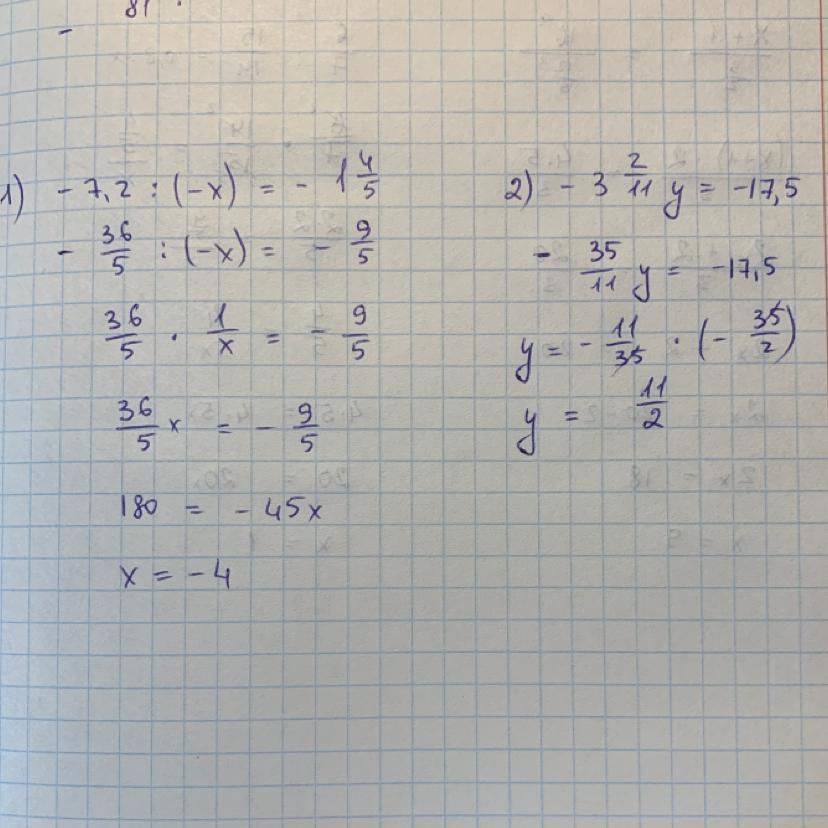 81
-
1) - 7,2 : (-x) = - 1 4/5
- 36/5 : (-x) = - 9/5
36/5 · 1/x = - 9/5
36/5 x = - 9/5
180 = - 45x
x = - 4
2) - 3 2/11 y = -17,5
- 35/11 y = -17,5
y = - 11/35 · (- 35/2)
y = 11/2